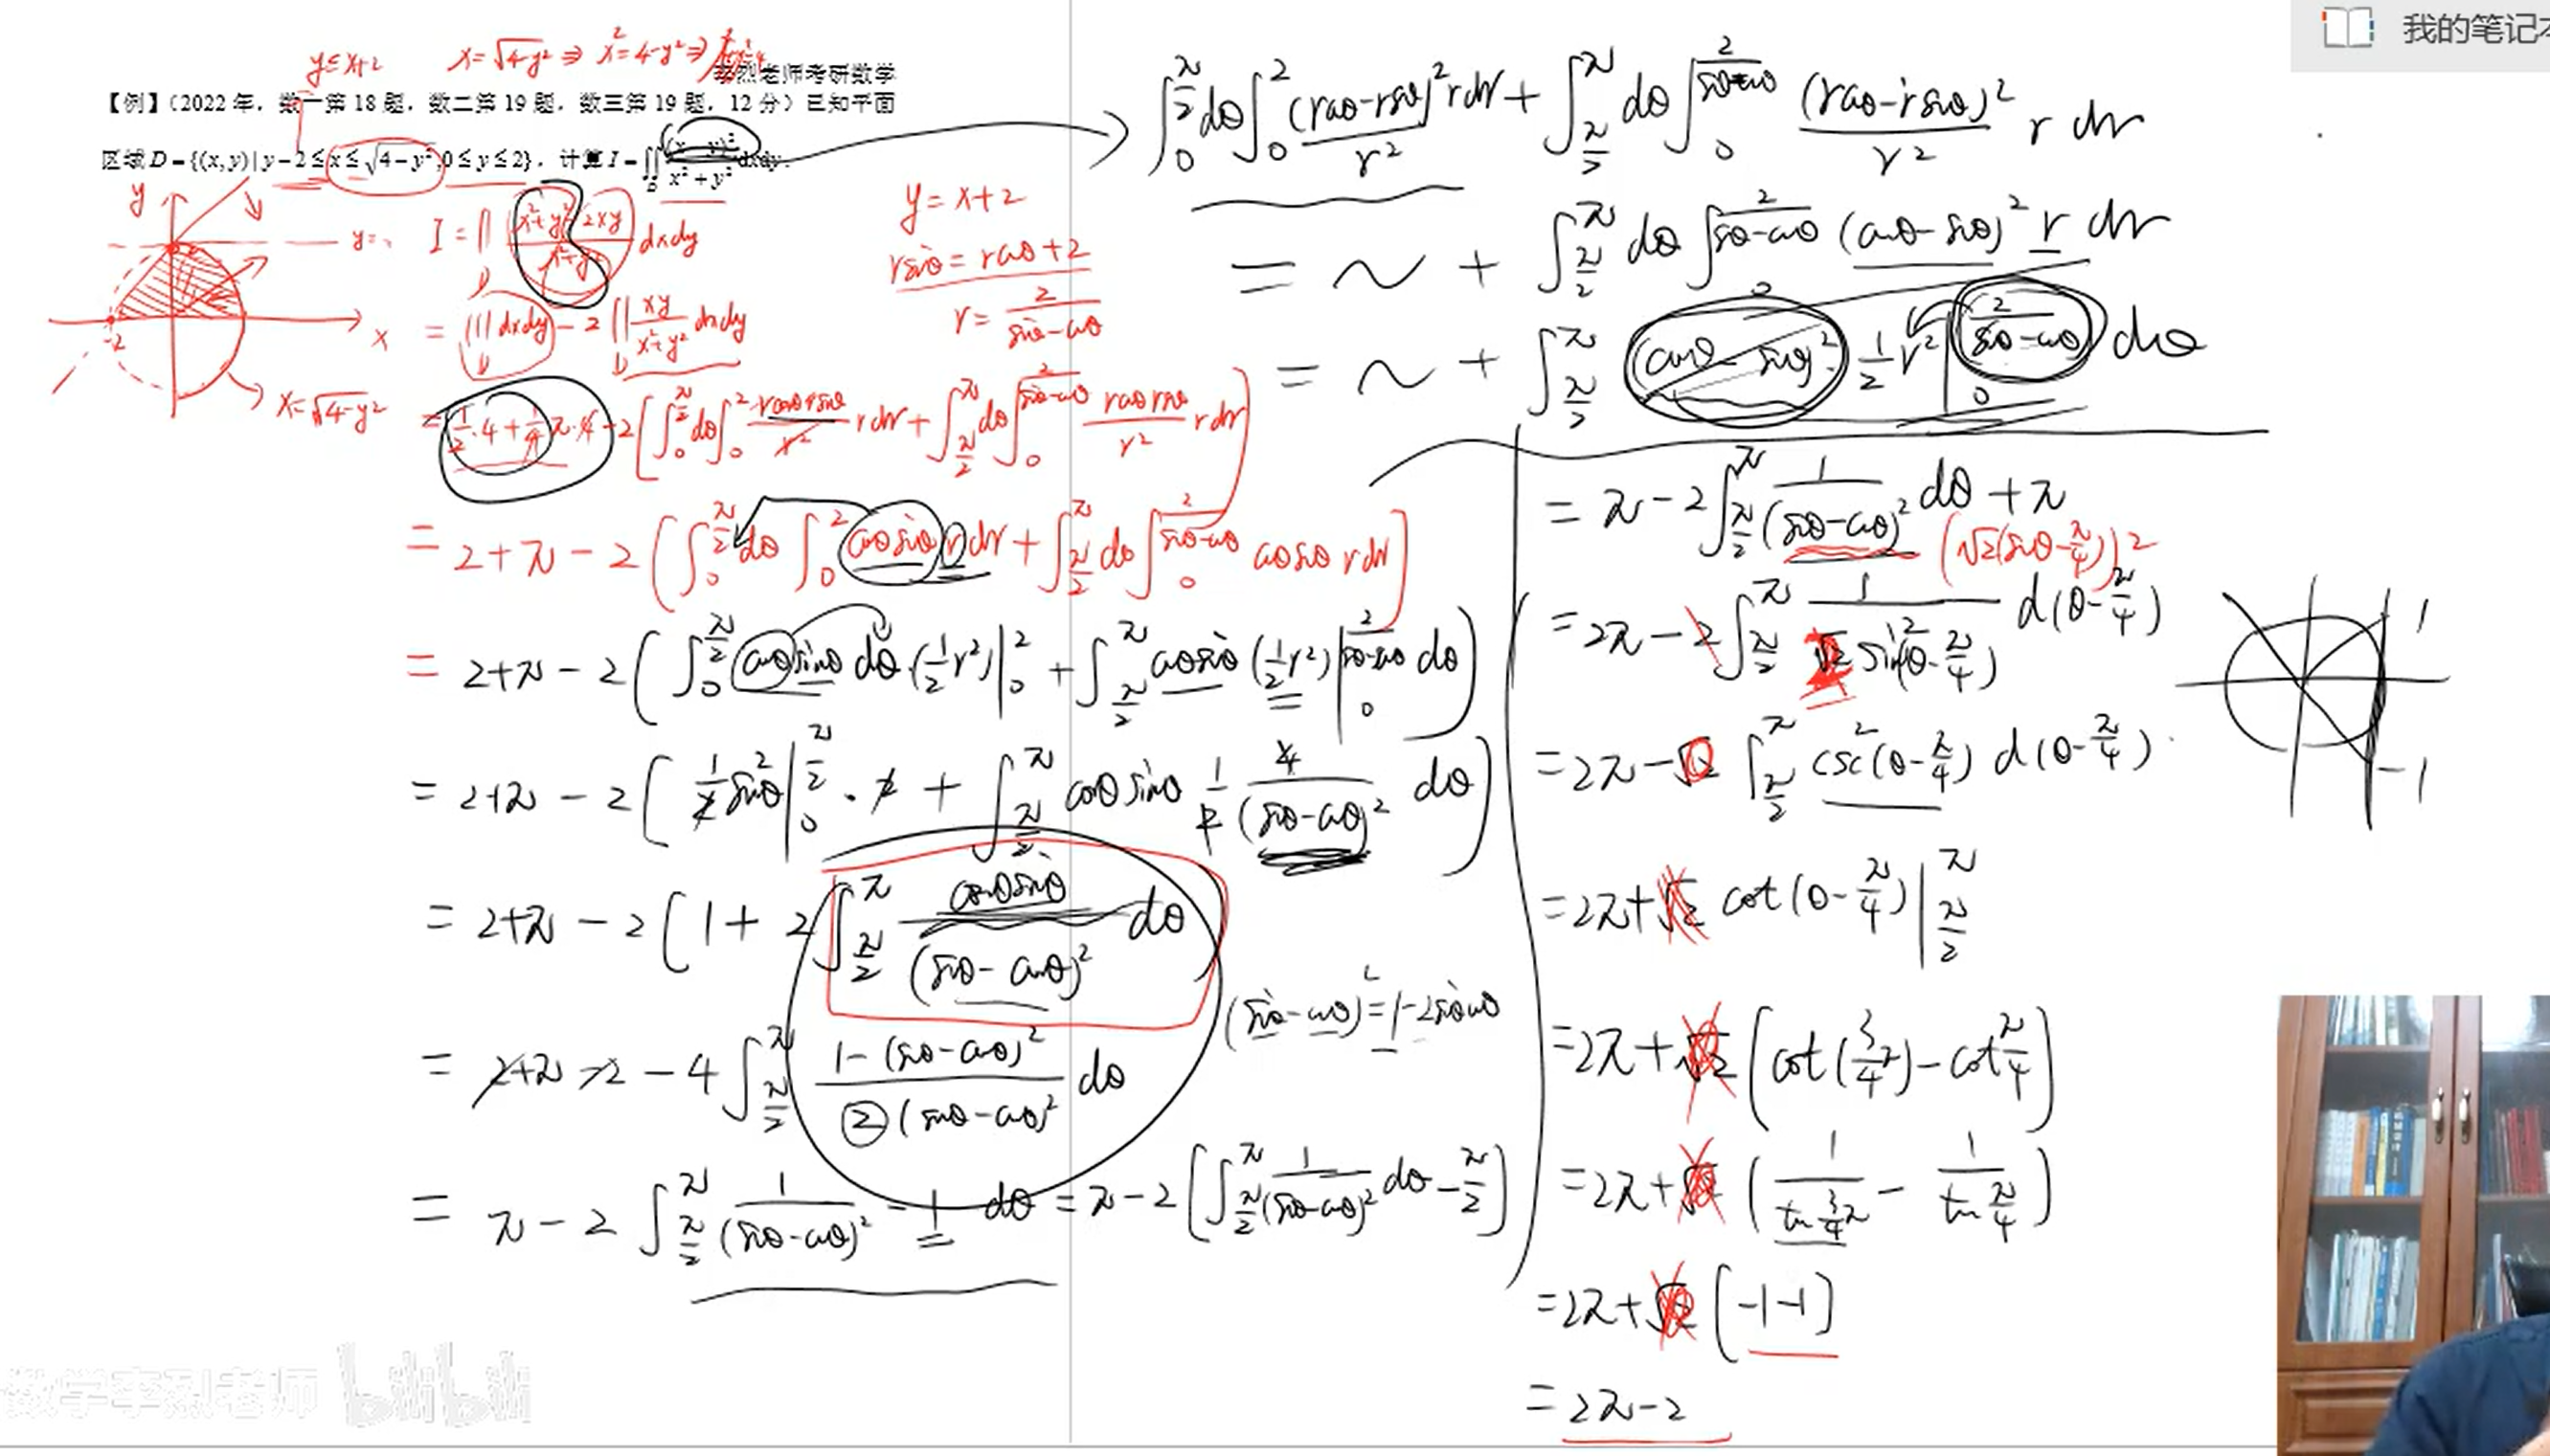 我的笔记本
y=x+2 x=√(4-y²) ⇒ x²=4-y² ⇒
李烈老师考研数学
【例】（2022 年，数一第 18 题，数二第 19 题，数三第 19 题，12 分）已知平面
区域 D={(x,y)|y-2≤x≤√(4-y²),0≤y≤2}，计算 I=∬_D (x-y)²/(x²+y²) dxdy.
y
x
-2
x=√(4-y²)
I=∬_D (x²+y²-2xy)/(x²+y²) dxdy
=∬1dxdy-2∬_D xy/(x²+y²) dxdy
y=x+2
rsinθ=rcosθ+2
r=2/(sinθ-cosθ)
=1/2·4+1/4π·4-2[∫_0^{π/2}dθ∫_0^2 (rcosθ rsinθ)/r² rdr+∫_{π/2}^π dθ∫_0^{2/(sinθ-cosθ)} (rcosθ rsinθ)/r² rdr]
=2+π-2(∫_0^{π/2}dθ∫_0^2 cosθsinθ r dr+∫_{π/2}^π dθ∫_0^{2/(sinθ-cosθ)} cosθsinθ rdr]
=2+π-2(∫_0^{π/2} cosθsinθ dθ·(1/2r²)|_0^2+∫_{π/2}^π cosθsinθ(1/2r²)|_0^{2/(sinθ-cosθ)} dθ)
=2+π-2[1/2sin²θ|_0^{π/2}·2+∫_{π/2}^π cosθsinθ 1/2 4/(sinθ-cosθ)² dθ)
=2+π-2[1+2∫_{π/2}^π cosθsinθ/(sinθ-cosθ)² dθ
(sinθ-cosθ)²=1-2sinθcosθ
=2+π-2-4∫_{π/2}^π (1-(sinθ-cosθ)²)/(2(sinθ-cosθ)²) dθ
=π-2∫_{π/2}^π 1/(sinθ-cosθ)²-1 dθ=π-2[∫_{π/2}^π 1/(sinθ-cosθ)² dθ-π/2]
∫_0^{π/2}dθ∫_0^2 (rcosθ-rsinθ)²/r² rdr+∫_{π/2}^π dθ∫_0^{2/(sinθ-cosθ)} (rcosθ-rsinθ)²/r² r dr
=~+∫_{π/2}^π dθ∫_0^{2/(sinθ-cosθ)} (cosθ-sinθ)² r dr
=~+∫_{π/2}^π (cosθ-sinθ)²·1/2r²|_0^{2/(sinθ-cosθ)} dθ
=π-2∫_{π/2}^π 1/(sinθ-cosθ)² dθ+π
(√2(sinθ-π/4))²
=2π-2∫_{π/2}^π 1/(2sin²(θ-π/4)) d(θ-π/4)
1
-1
=2π-∫_{π/2}^π csc²(θ-π/4) d(θ-π/4)
=2π+cot(θ-π/4)|_{π/2}^π
=2π+[cot(3/4π)-cotπ/4]
=2π+(1/tan3/4π-1/tanπ/4)
=2π+[-1-1]
=2π-2
数学李烈老师 bilibili